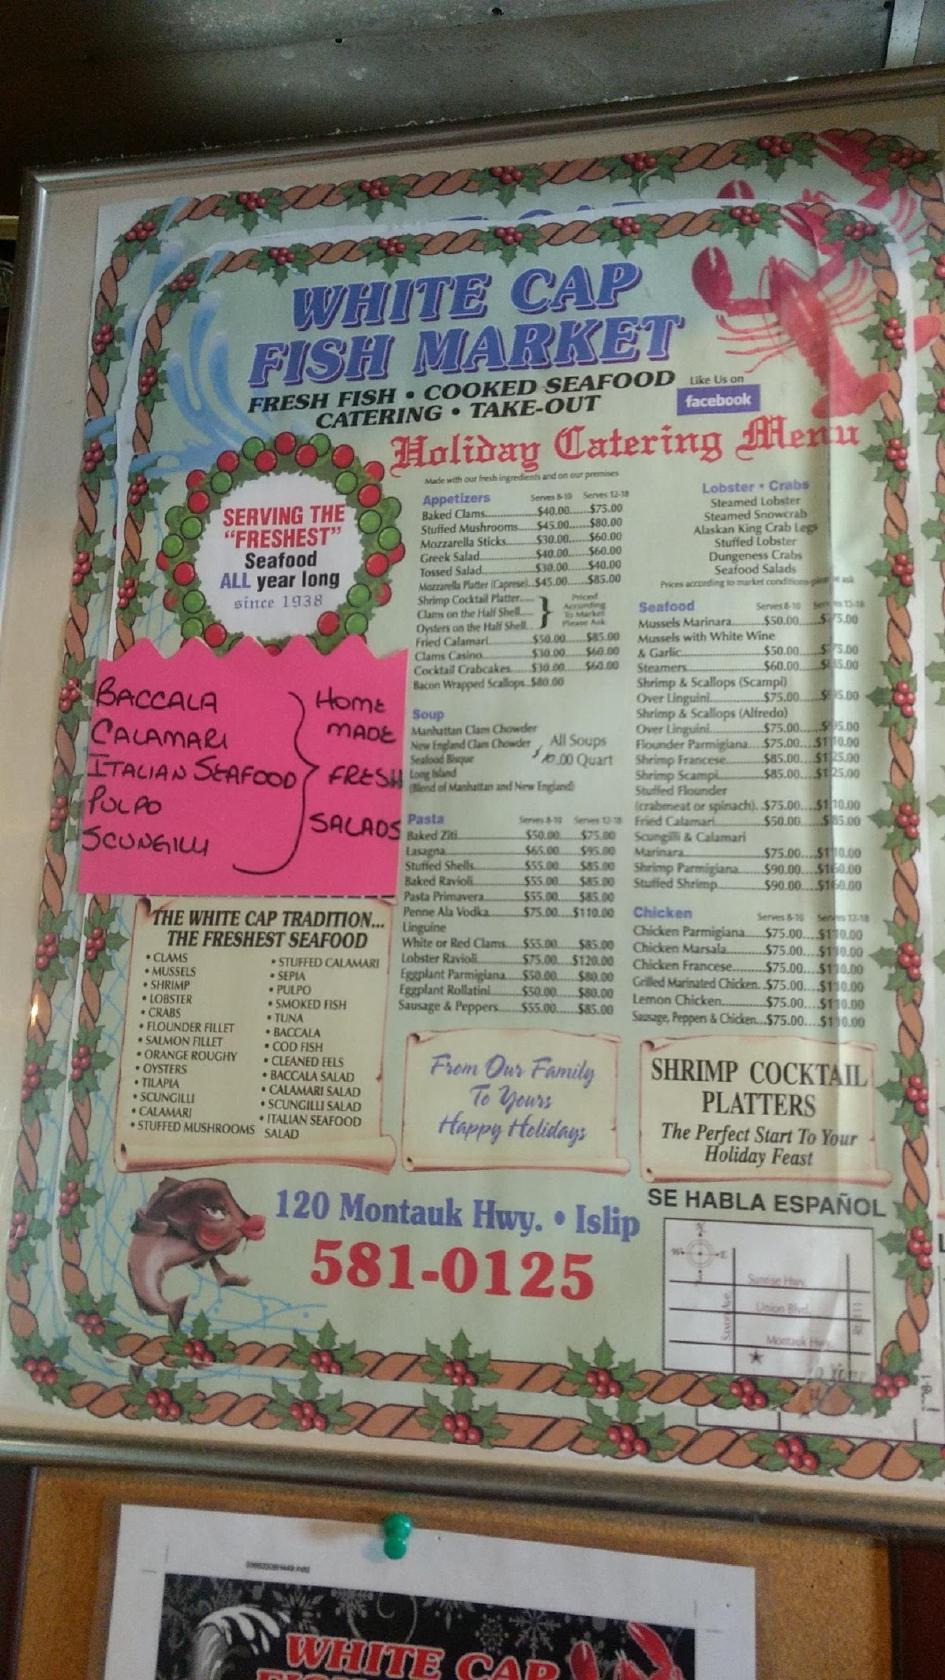 WHITE CAP
FISH MARKET
FRESH FISH • COOKED SEAFOOD
CATERING • TAKE-OUT
Like Us on
facebook
Holiday Catering Menu
Made with our fresh ingredients and on our premises
SERVING THE
"FRESHEST"
Seafood
ALL year long
since 1938
BACCALA
CALAMARI
ITALIAN SEAFOOD
PULPO
SCUNGILLI
HOME
MADE
FRESH
SALADS
THE WHITE CAP TRADITION...
THE FRESHEST SEAFOOD
• CLAMS
• MUSSELS
• SHRIMP
• LOBSTER
• CRABS
• FLOUNDER FILLET
• SALMON FILLET
• ORANGE ROUGHY
• OYSTERS
• TILAPIA
• SCUNGILLI
• CALAMARI
• STUFFED MUSHROOMS
• STUFFED CALAMARI
• SEPIA
• PULPO
• SMOKED FISH
• TUNA
• BACCALA
• COD FISH
• CLEANED EELS
• BACCALA SALAD
• CALAMARI SALAD
• SCUNGILLI SALAD
• ITALIAN SEAFOOD
SALAD
Appetizers Serves 8-10 Serves 12-18
Baked Clams $40.00 $75.00
Stuffed Mushrooms $45.00 $80.00
Mozzarella Sticks $30.00 $60.00
Greek Salad $40.00 $60.00
Tossed Salad $30.00 $40.00
Mozzarella Platter (Caprese) $45.00 $85.00
Shrimp Cocktail Platter
Clams on the Half Shell
Oysters on the Half Shell
Priced
According
To Market
Please Ask
Fried Calamari $50.00 $85.00
Clams Casino $30.00 $60.00
Cocktail Crabcakes $30.00 $60.00
Bacon Wrapped Scallops $80.00
Soup
Manhattan Clam Chowder
New England Clam Chowder
Seafood Bisque
Long Island
(Blend of Manhattan and New England)
All Soups
10.00 Quart
Pasta Serves 8-10 Serves 12-18
Baked Ziti $50.00 $75.00
Lasagna $65.00 $95.00
Stuffed Shells $55.00 $85.00
Baked Ravioli $55.00 $85.00
Pasta Primavera $55.00 $85.00
Penne Ala Vodka $75.00 $110.00
Linguine
White or Red Clams $55.00 $85.00
Lobster Ravioli $75.00 $120.00
Eggplant Parmigiana $50.00 $80.00
Eggplant Rollatini $50.00 $80.00
Sausage & Peppers $55.00 $85.00
Lobster • Crabs
Steamed Lobster
Steamed Snowcrab
Alaskan King Crab Legs
Stuffed Lobster
Dungeness Crabs
Seafood Salads
Prices according to market conditions-please ask
Seafood Serves 8-10
Mussels Marinara $50.00
Mussels with White Wine
& Garlic $50.00
Steamers $60.00
Shrimp & Scallops (Scampi)
Over Linguini $75.00
Shrimp & Scallops (Alfredo)
Over Linguini $75.00
Flounder Parmigiana $75.00 $110.00
Shrimp Francese $85.00 $125.00
Shrimp Scampi $85.00 $125.00
Stuffed Flounder
(crabmeat or spinach) $75.00 $110.00
Fried Calamari $50.00 $85.00
Scungilli & Calamari
Marinara $75.00 $110.00
Shrimp Parmigiana $90.00 $160.00
Stuffed Shrimp $90.00 $160.00
Chicken Serves 8-10 Serves 12-18
Chicken Parmigiana $75.00 $110.00
Chicken Marsala $75.00 $110.00
Chicken Francese $75.00 $110.00
Grilled Marinated Chicken $75.00 $110.00
Lemon Chicken $75.00 $110.00
Sausage, Peppers & Chicken $75.00 $110.00
From Our Family
To Yours
Happy Holidays
SHRIMP COCKTAIL
PLATTERS
The Perfect Start To Your
Holiday Feast
120 Montauk Hwy. • Islip
581-0125
SE HABLA ESPAÑOL
N
W E
S
Sunrise Hwy.
Union Blvd.
Montauk Hwy.
WHITE CAP